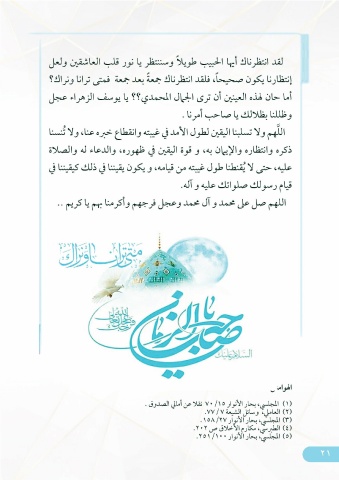 لقد انتظرناك أيها الحبيب طويلاً وسننتظر يا نور قلب العاشقين ولعل
إنتظارنا يكون صحيحاً، فلقد انتظرناك جمعةً بعد جمعة فمتى ترانا ونراك؟
أما حان لهذه العينين أن ترى الجمال المحمدي؟؟ يا يوسف الزهراء عجل
وظللنا بظلالك يا صاحب أمرنا .
اللّهم ولا تسلبنا اليقين لطول الأمد في غيبته وانقطاع خبره عنا، ولا تُنسنا
ذكره وانتظاره والإيمان به، و قوة اليقين في ظهوره، والدعاء له والصلاة
عليه، حتى لا يُقنطنا طول غيبته من قيامه، و يكون يقيننا في ذلك كيقيننا في
قيام رسولك صلواتك عليه و آله.
اللهم صل على محمد و آل محمد وعجل فرجهم وأكرمنا بهم يا كريم ..
متى ترانا ونراك
يا صاحب الزمان
السلام عليك
الهوامش
(١) المجلسي، بحار الأنوار ١٥/ ٧٠ نقلا عن أمالي الصدوق .
(٢) العاملي، وسائل الشيعة ٧/ ٧٧.
(٣) المجلسي، بحار الأنوار ٢٧/ ١٥٨.
(٤) الطبرسي، مكارم الأخلاق ص ٢٠٢.
(٥) المجلسي، بحار الأنوار ١٠٠/ ٢٥١.
٢١